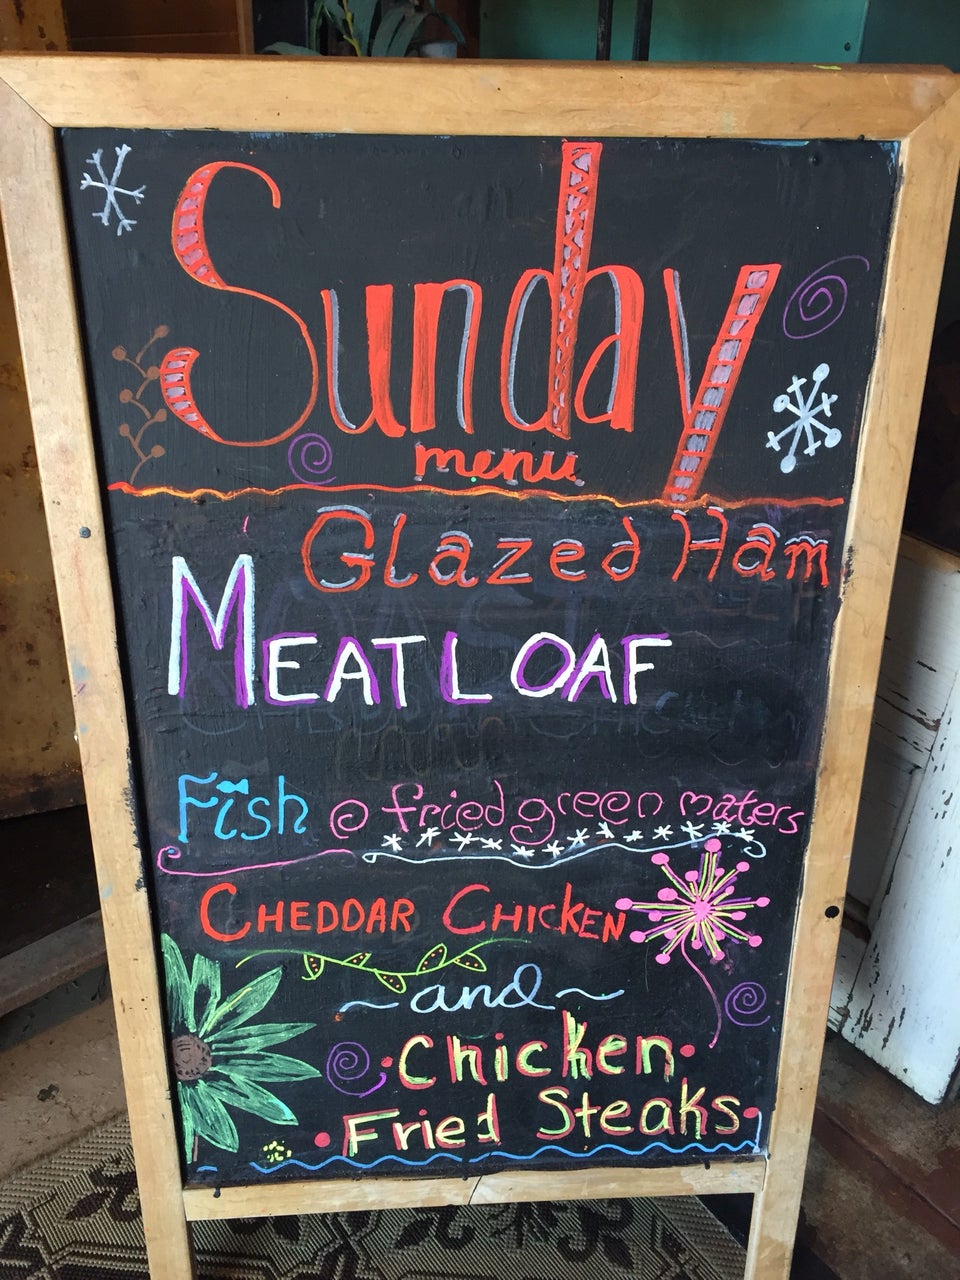 Sunday
menu
Glazed Ham
MEATLOAF
Fish @ fried green maters
CHEDDAR CHICKEN
~and~
Chicken
Fried Steaks